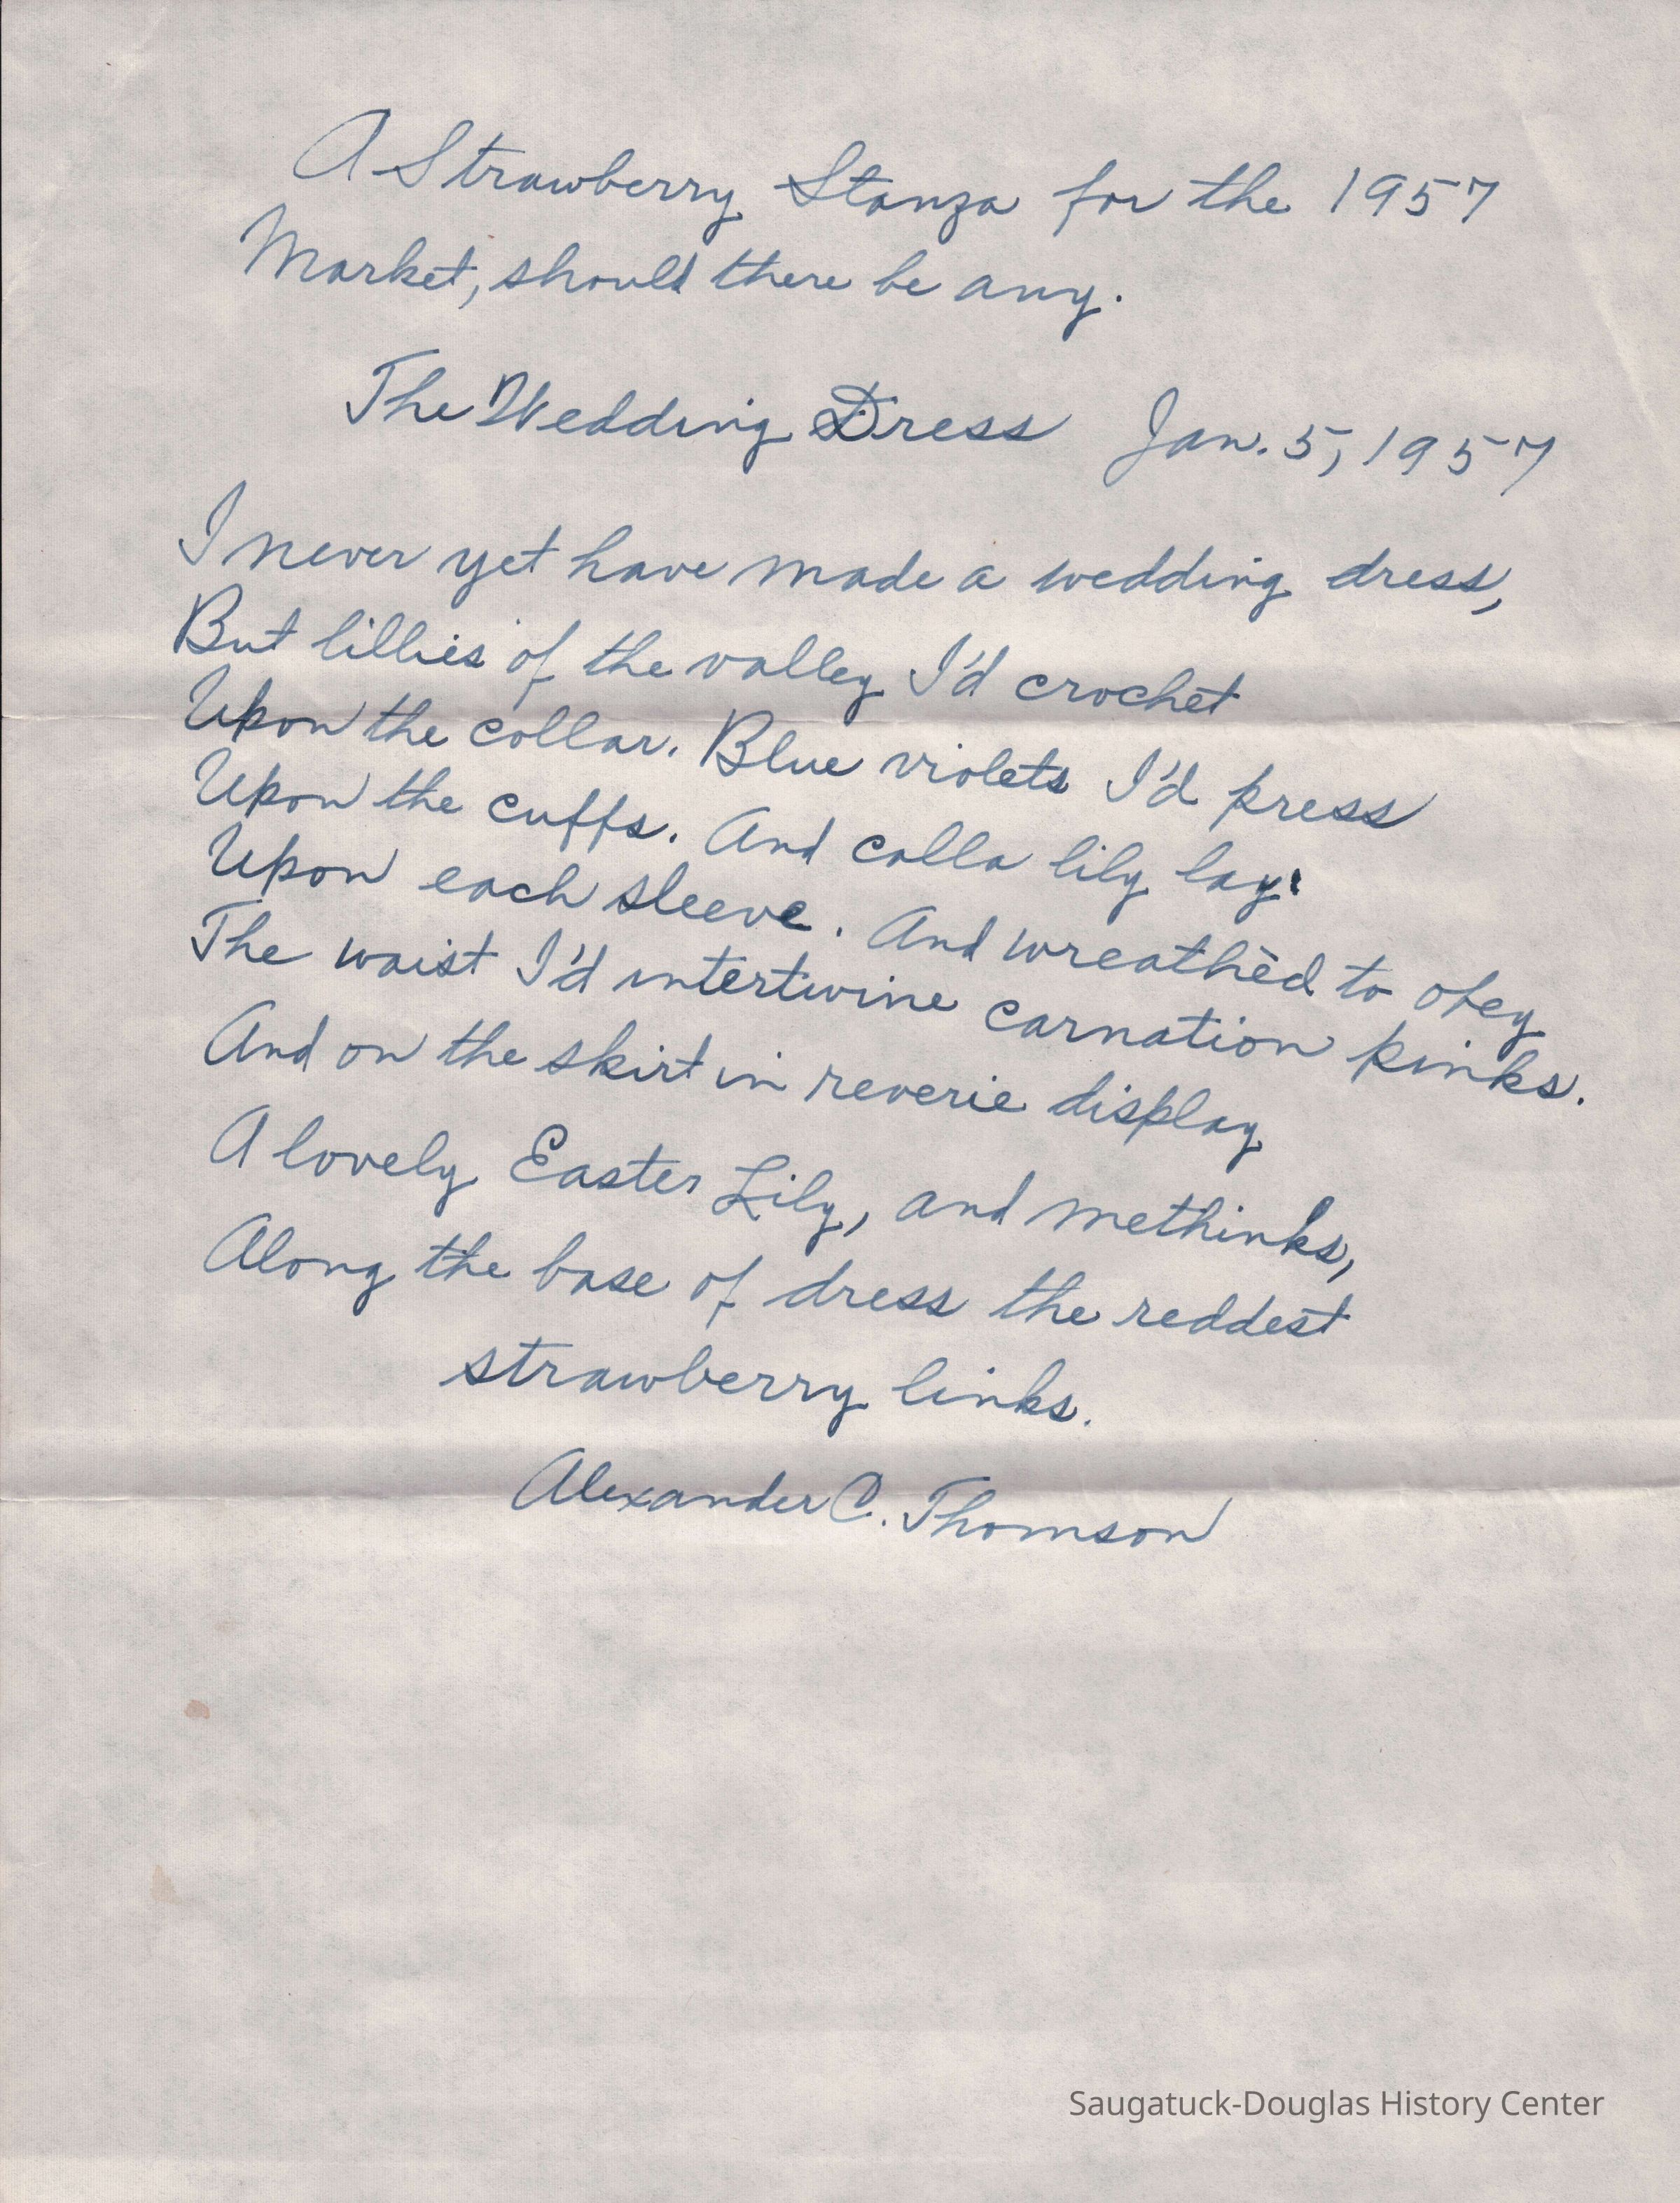 A Strawberry Stanza for the 1957
Market, should there be any.
The Wedding Dress Jan. 5, 1957
I never yet have made a wedding dress,
But lillies of the valley I'd crochet
Upon the collar. Blue violets I'd press
Upon the cuffs. And calla lily lay
Upon each sleeve. And wreathèd to obey
The waist I'd intertwine carnation pinks.
And on the skirt in reverie display
A lovely Easter Lily, and methinks,
Along the base of dress the reddest
strawberry links.
Alexander C. Thomson
Saugatuck-Douglas History Center